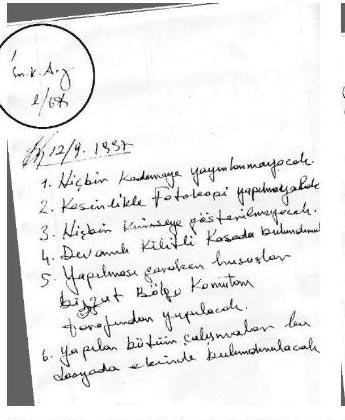 12/9. 1997
1. Hiçbir kademeye yayınlanmayacak.
2. Kesinlikle Fotokopi yapılmayacak
3. Hiçbir kimseye gösterilmeyecek.
4. Devamlı Kilitli Kasada
5. Yapılması gereken hususlar
bizzat Bölge Komutanı
tarafından yapılacak.
6. Yapılan bütün çalışmalar bu
dosyada ekinde bulundurulacak